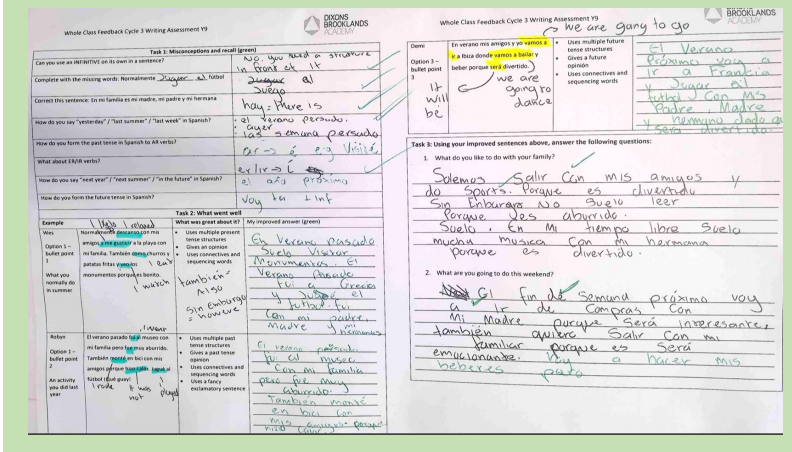 Whole Class Feedback Cycle 3 Writing Assessment Y9
DIXONS
BROOKLANDS
ACADEMY
Task 1: Misconceptions and recall (green)
Can you use an INFINITIVE on its own in a sentence?
No. you need a structure
in front of it
Complete with the missing words: Normalmente Jugar al fútbol
Juego al
Correct this sentence: En mi familia es mi madre, mi padre y mi hermana
hay = there is
How do you say "yesterday" / "last summer" / "last week" in Spanish?
el verano persudo.
ayer
las semana persado
How do you form the past tense in Spanish to AR verbs?
ar → é e.g Visité,
What about ER/IR verbs?
er/ir → í
How do you say "next year" / "next summer" / "in the future" in Spanish?
el año próximo
How do you form the future tense in Spanish?
Voy ta + inf
Task 2: What went well
Example
What was great about it?
My improved answer (green)
Wes
Option 1 –
bullet point
1
What you
normally do
in summer
I relaxed
Normalmente descanso con mis
amigos y me gusta ir a la playa con
mi familia. También como churros y
patatas fritas y veo los
monumentos porque es bonito.
I eat
I watch
Uses multiple present
tense structures
Gives an opinion
Uses connectives and
sequencing words
también =
Also
Sin Emburgo
= howeve
En Verano Pasado
Suelo Visitar
Monumentos. El
Verano Pasado
fui a Grecia
y Jugué el
futbol fui
Con mi padre,
madre y mi
hermanas
Robyn
Option 1 –
bullet point
2
An activity
you did last
year
I went
El verano pasado fui al museo con
mi familia pero fue muy aburrido.
También monté en bici con mis
amigos porque hizo calor. Jugué al
fútbol ¡Qué guay!
I rode
it was
hot
played
Uses multiple past
tense structures
Gives a past tense
opinion
Uses connectives and
sequencing words
Uses a fancy
exclamatory sentence
El verano pasado
fui al museo
Con mi familia
pero fue muy
aburrido.
También monté
en bici Con
mis amigos porque
hizo Calor.
Whole Class Feedback Cycle 3 Writing Assessment Y9
BROOKLANDS
ACADEMY
we are gony to go
Demi
Option 3 –
bullet point
3
En verano mis amigos y yo vamos a
ir a Ibiza donde vamos a bailar y
beber porque será divertido.
we are
going to
dance
It
will
be
Uses multiple future
tense structures
Gives a future
opinion
Uses connectives and
sequencing words
El Verano
Próximo voy a
Ir a Francia
y Jugar al
futbol Con Mis
Padre, Madre
y hermano
Será divertido.
Task 3: Using your improved sentences above, answer the following questions:
1. What do you like to do with your family?
Solemos Salir Con mis amigos y
do Sports. Porque es divertido
Sin Enbargo No Suelo leer
Porque es aburrido.
Suelo. En Mi tiempo libre Suelo
mucha musica Con mi hermana
porque es divertido.
2. What are you going to do this weekend?
El fin de Semana próximo voy
a ir de Compras Con
Mi Madre porque Será interesante,
también quiero Salir Con mi
familiar porque es Será
emocionante. Voy a hacer mis
beberes para